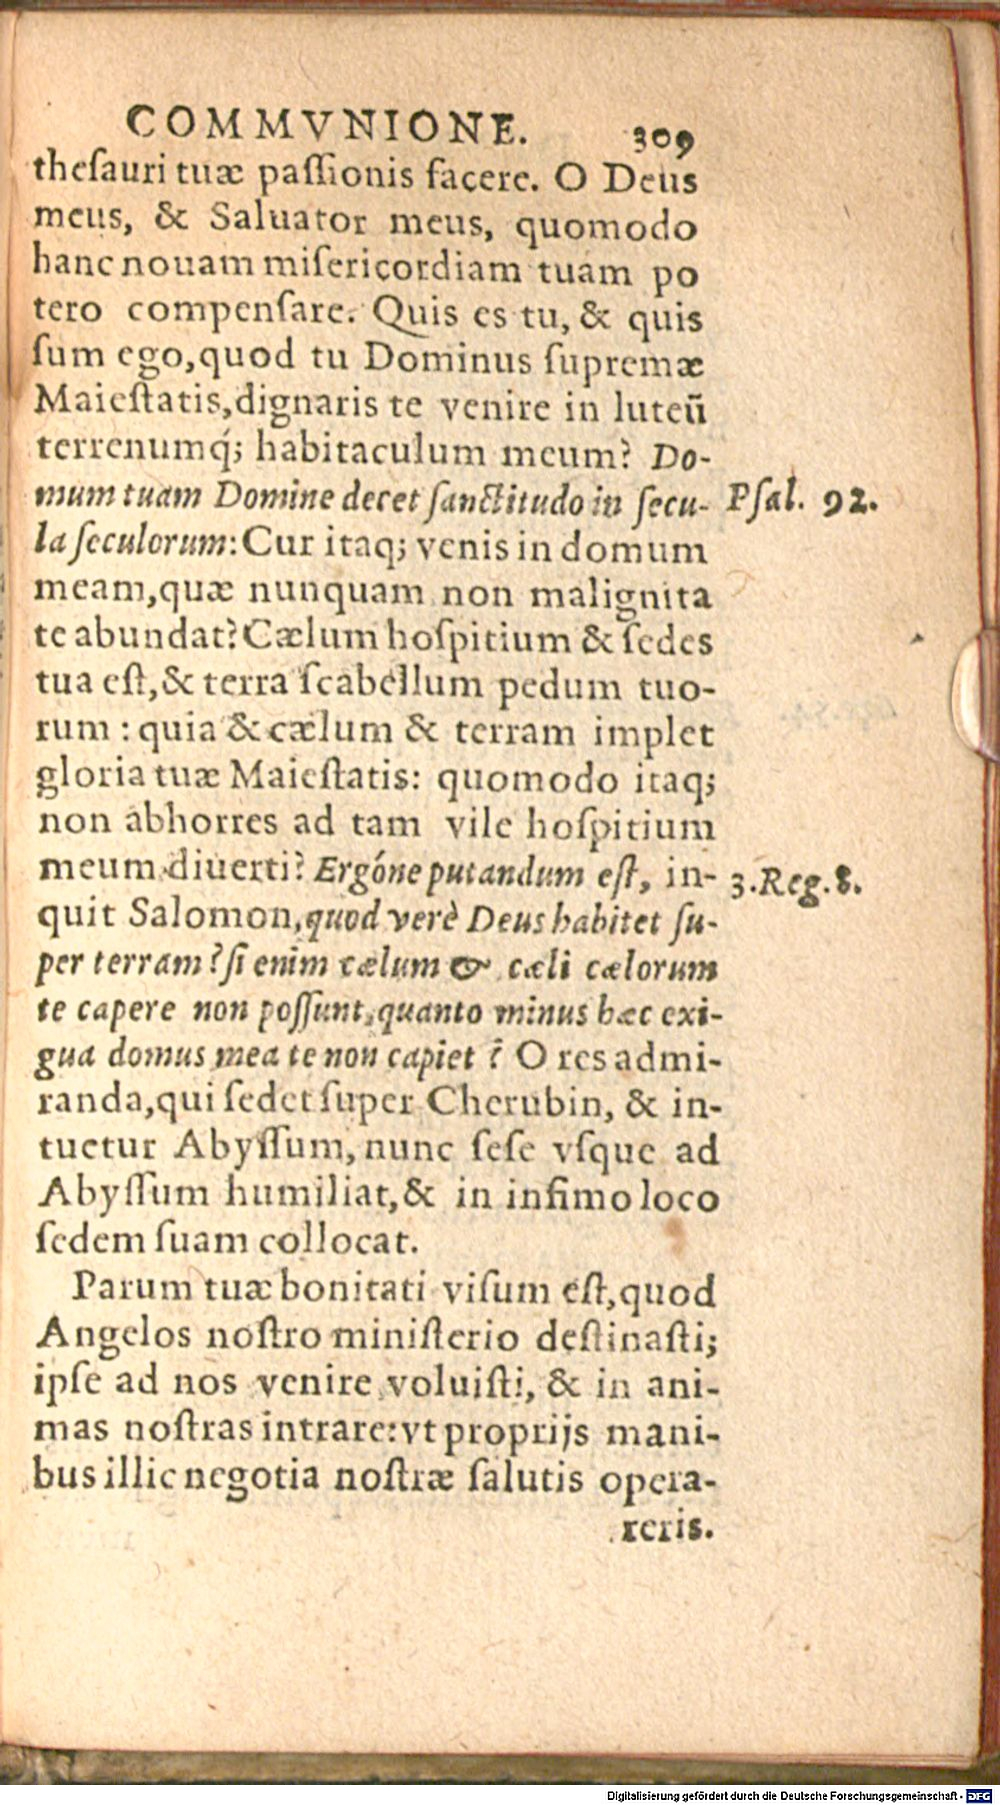 COMMVNIONE. 309
theſauri tuæ paſſionis facere. O Deus
meus, & Saluator meus, quomodo
hanc nouam miſericordiam tuam po
tero compenſare. Quis es tu, & quis
ſum ego, quod tu Dominus ſupremæ
Maieſtatis, dignaris te venire in luteũ
terrenumq́; habitaculum meum? Do-
mum tuam Domine decet ſanctitudo in ſecu- Pſal. 92.
la ſeculorum: Cur itaq; venis in domum
meam, quæ nunquam non malignita
te abundat? Cælum hoſpitium & ſedes
tua eſt, & terra ſcabellum pedum tuo-
rum : quia & cælum & terram implet
gloria tuæ Maieſtatis: quomodo itaq;
non abhorres ad tam vile hoſpitium
meum diuerti? Ergóne putandum eſt, in- 3. Reg. 8.
quit Salomon, quod verè Deus habitet ſu-
per terram? ſi enim cælum & cæli cælorum
te capere non poſſunt, quanto minus hæc exi-
gua domus mea te non capiet? O res admi-
randa, qui ſedet ſuper Cherubin, & in-
tuetur Abyſſum, nunc ſeſe vſque ad
Abyſſum humiliat, & in infimo loco
ſedem ſuam collocat.
Parum tuæ bonitati viſum eſt, quod
Angelos noſtro miniſterio deſtinaſti;
ipſe ad nos venire voluiſti, & in ani-
mas noſtras intrare: vt proprijs mani-
bus illic negotia noſtræ ſalutis opera-
reris.
Digitalisierung gefördert durch die Deutsche Forschungsgemeinschaft - DFG